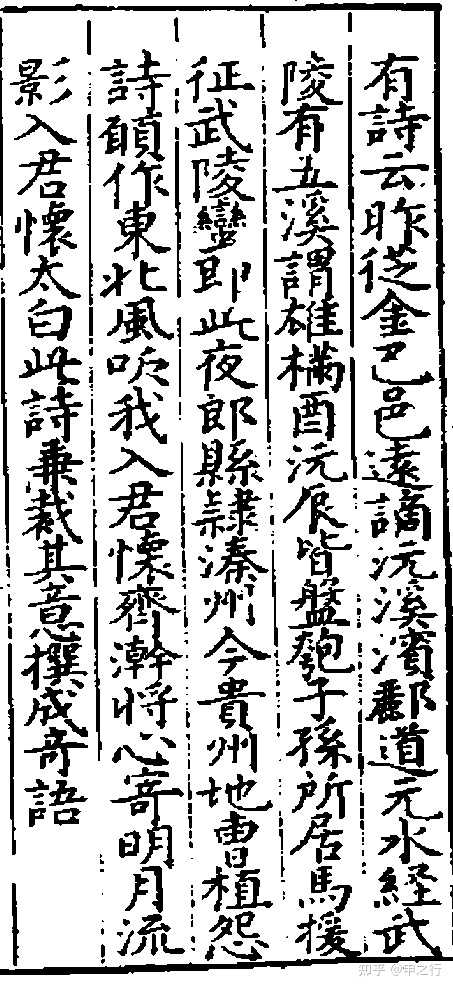 有詩云昨從金已邑遠謫沅溪濱酈道元水經武
陵有五溪謂雄樠酉沅辰皆盤瓠子孫所居馬援
征武陵蠻即此夜郎縣隷溱州今貴州地曹植怨
詩願作東北風吹我入君懷齊澣將心寄明月流
影入君懷太白此詩兼裁其意撰成奇語
知乎 @申之行